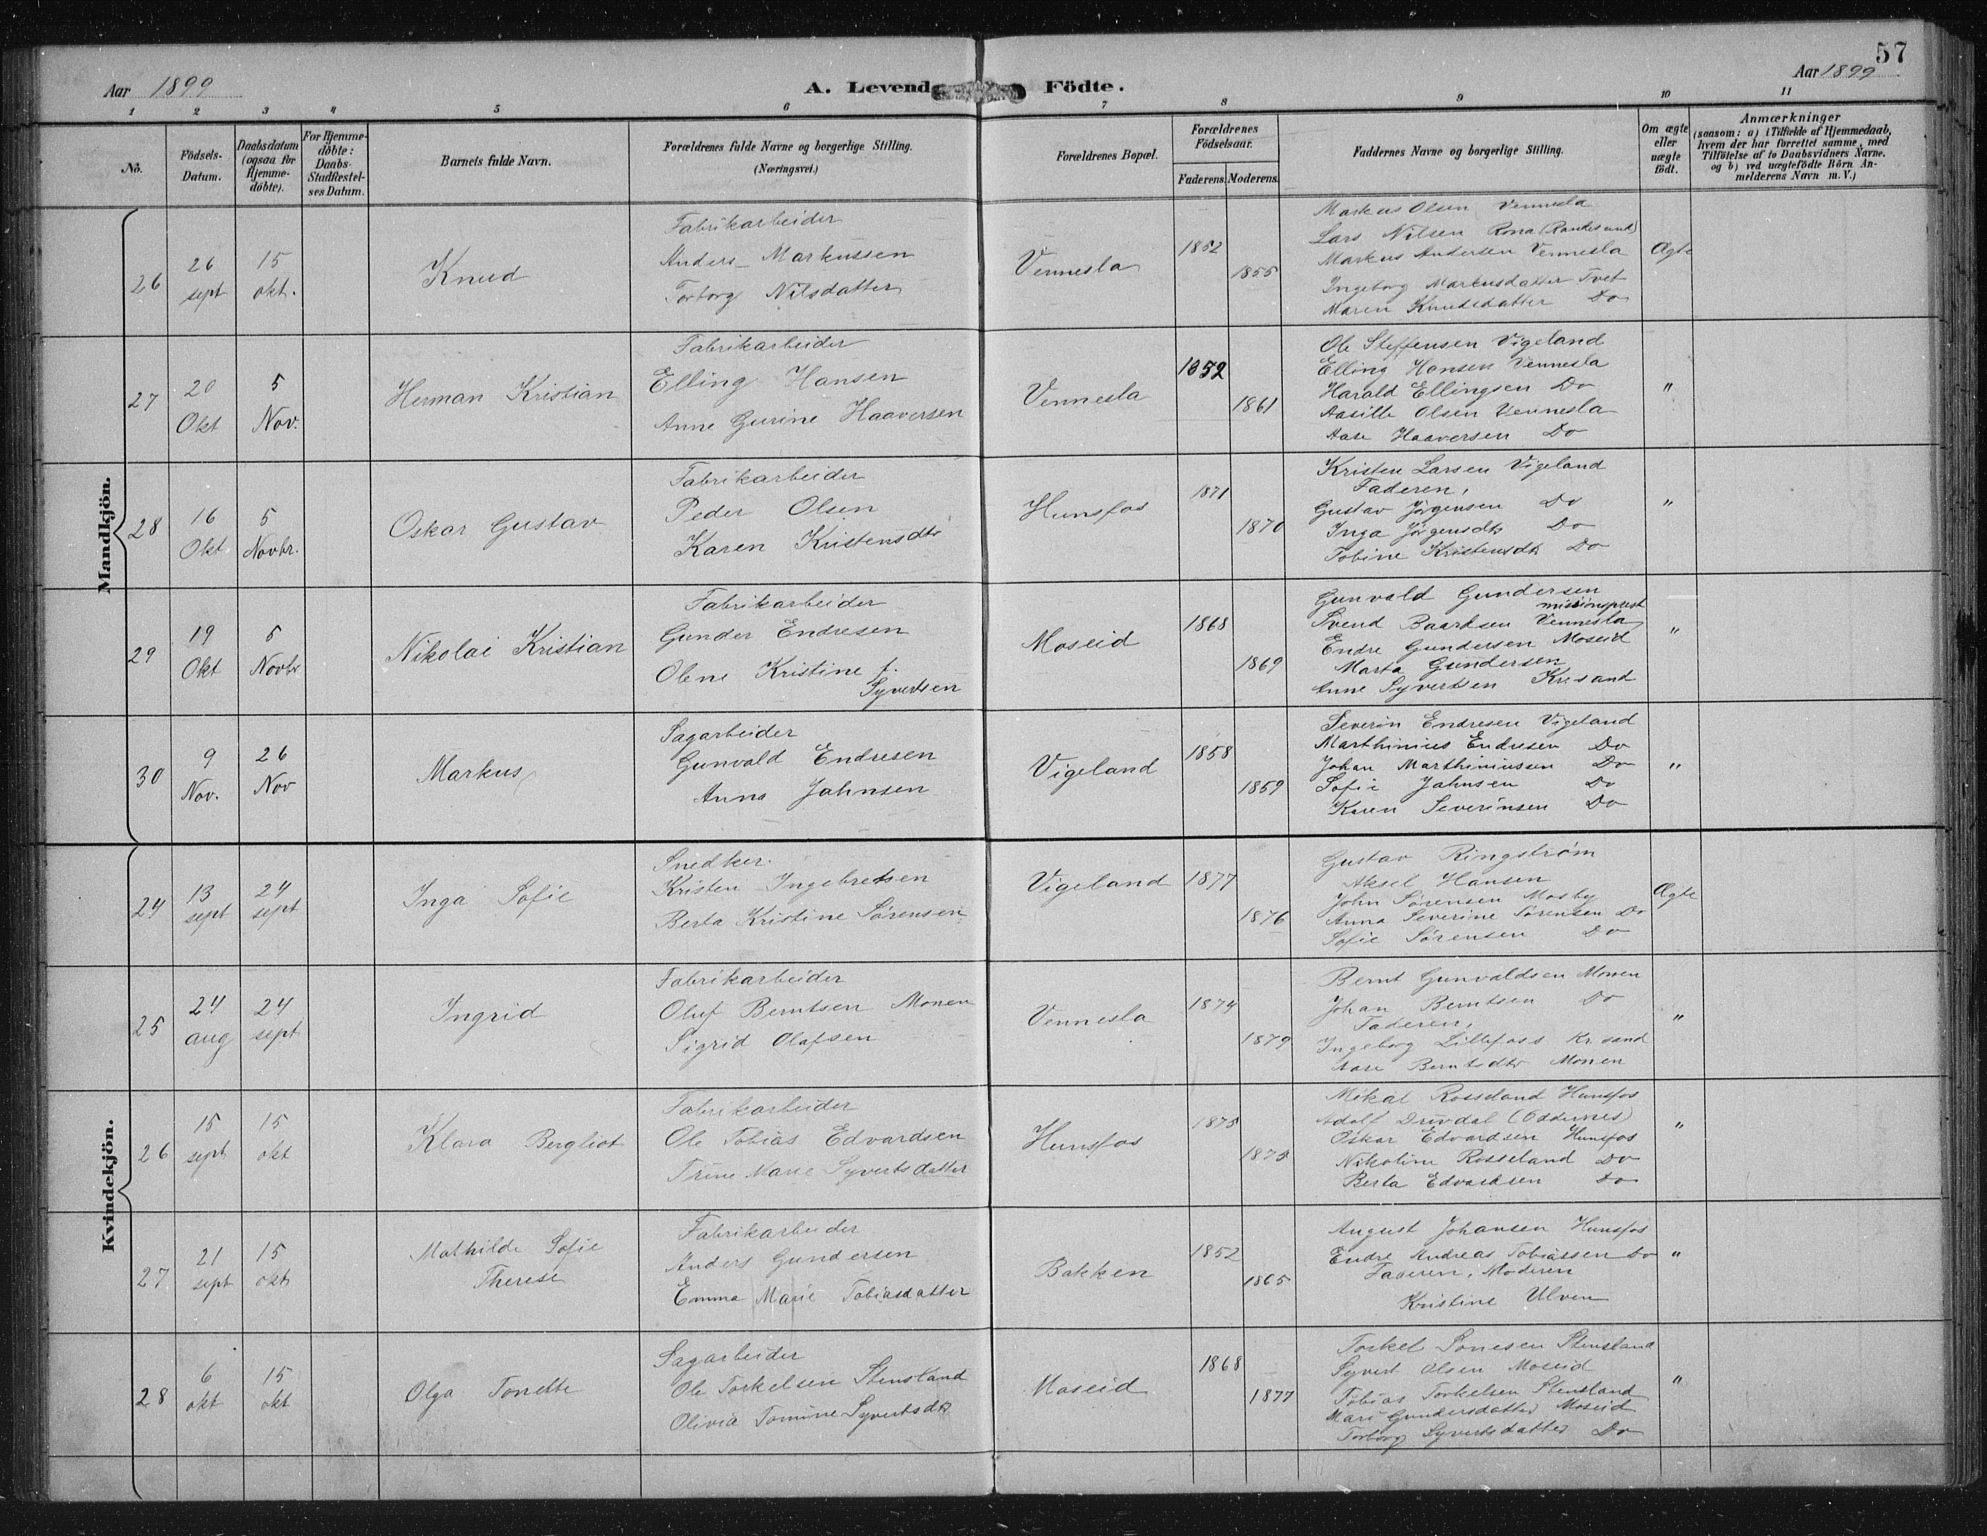 57
Aar 1899
A. Levende Födte.
Aar 1899
1 2 3 4 5 6 7 8 9 10 11
No.
Födsels-Datum.
Daabsdatum (ogsaa for Hjemme-döbte).
For Hjemme-döbte: Daabs-Stadfæstel-ses Datum.
Barnets fulde Navn.
Forældrenes fulde Navne og borgerlige Stilling.
(Næringsvei.)
Forældrenes Bopæl.
Forældrenes Födselsaar.
Faderens. Moderens.
Faddernes Navne og borgerlige Stilling.
Om ægte eller uægte födt.
Anmærkninger
(saasom: a) i Tilfælde af Hjemmedaab, hvem der har forrettet samme, med Tilföielse af to Daabsvidners Navne, og b) ved uægtefödte Börn An-melderens Navn m. V.)
Mandkjön.
26
26 sept
15 okt.
Knud
Fabrikarbeider
Anders Markussen
Torborg Nilsdatter
Vennesla
1852
1855
Markus Olsen Vennesla
Lars Nilsen Rona (Randesund)
Markus Andersen Vennesla
Ingeborg Markusdatter Tvet
Maren Knudsdatter Do
Ægte
27
20 Okt
5 Nov.
Herman Kristian
Fabrikarbeider
Elling Hansen
Anne Gurine Haaversen
Vennesla
1852
1861
Ole Steffensen Vigeland
Elling Hansen Vennesla
Harald Ellingsen Do
Aasille Olsen Vennesla
Aase Haaversen Do
"
28
16 Okt
5 Novbr.
Oskar Gustav
Fabrikarbeider
Peder Olsen
Karen Kristensdtr
Hunsfos
1871
1870
Kristen Larsen Vigeland
Faderen,
Gustav Jörgensen Do
Inga Jörgensdtr Do
Tobine Kristensdtr Do
"
29
19 Okt
5 Novbr
Nikolai Kristian
Fabrikarbeider
Gunder Endresen
Olene Kristine f.
Syvertsen
Moseid
1868
1869
Gunvald Gundersen
missionsprest
Svend Baardsen Vennesla
Endre Gundersen Moseid
Marta Gundersen
Anne Syvertsen Kr.sand
"
30
9 Nov.
26 Nov
Markus
Sagarbeider
Gunvald Endresen
Anna Jahnsen
Vigeland
1858
1859
Severin Endresen Vigeland
Marthinius Endresen Do
Johan Marthiniussen Do
Sofie Jahnsen Do
Karen Severinsen Do
"
Kvindekjön.
24
13 sept
24 sept
Inga Sofie
Snedker.
Kristen Ingebretsen
Berta Kristine Sørensen
Vigeland
1877
1876
Gustav Ringstrøm
Aksel Hansen
John Sørensen Mosby
Anna Severine Sørensen Do
Sofie Sørensen Do
Ægte
25
24 aug
24 sept
Ingrid
Fabrikarbeider
Oluf Berntsen Monen
Sigrid Olafsen
Vennesla
1874
1879
Bernt Gunvaldsen Monen
Johan Berntsen Do
Faderen,
Ingeborg Lillefoss Kr.sand
Aase Berntsdtr Monen
"
26
15 sept
15 okt
Klara Bergliot
Fabrikarbeider
Ole Tobias Edvardsen
Trine Marie Syvertsdatter
Hunsfos
1875
Mikal Rosseland Hunsfos
Adolf Drivdal (Oddernes)
Oskar Edvardsen Hunsfos
Nikoline Rosseland Do
Berta Edvardsen Do
"
27
21 sept
15 okt
Mathilde Sofie
Therese
Fabrikarbeider
Anders Gundersen
Emma Marie Tobiasdatter
Bakken
1852
1865
August Johansen Hunsfos
Endre Andreas Tobiassen Do
Faderen, Moderen
Kristine Ulven
"
28
6 okt
15 okt
Olga Tonette
Sagarbeider
Ole Torkelsen Stensland
Olivia Tomine Syvertsdtr
Moseid
1868
1877
Torkel Tonesen Stensland
Syvert Olsen Moseid
Tobias Torkelsen Stensland
Mari Gundersdatter Moseid
Torborg Syvertsdatter Do
"